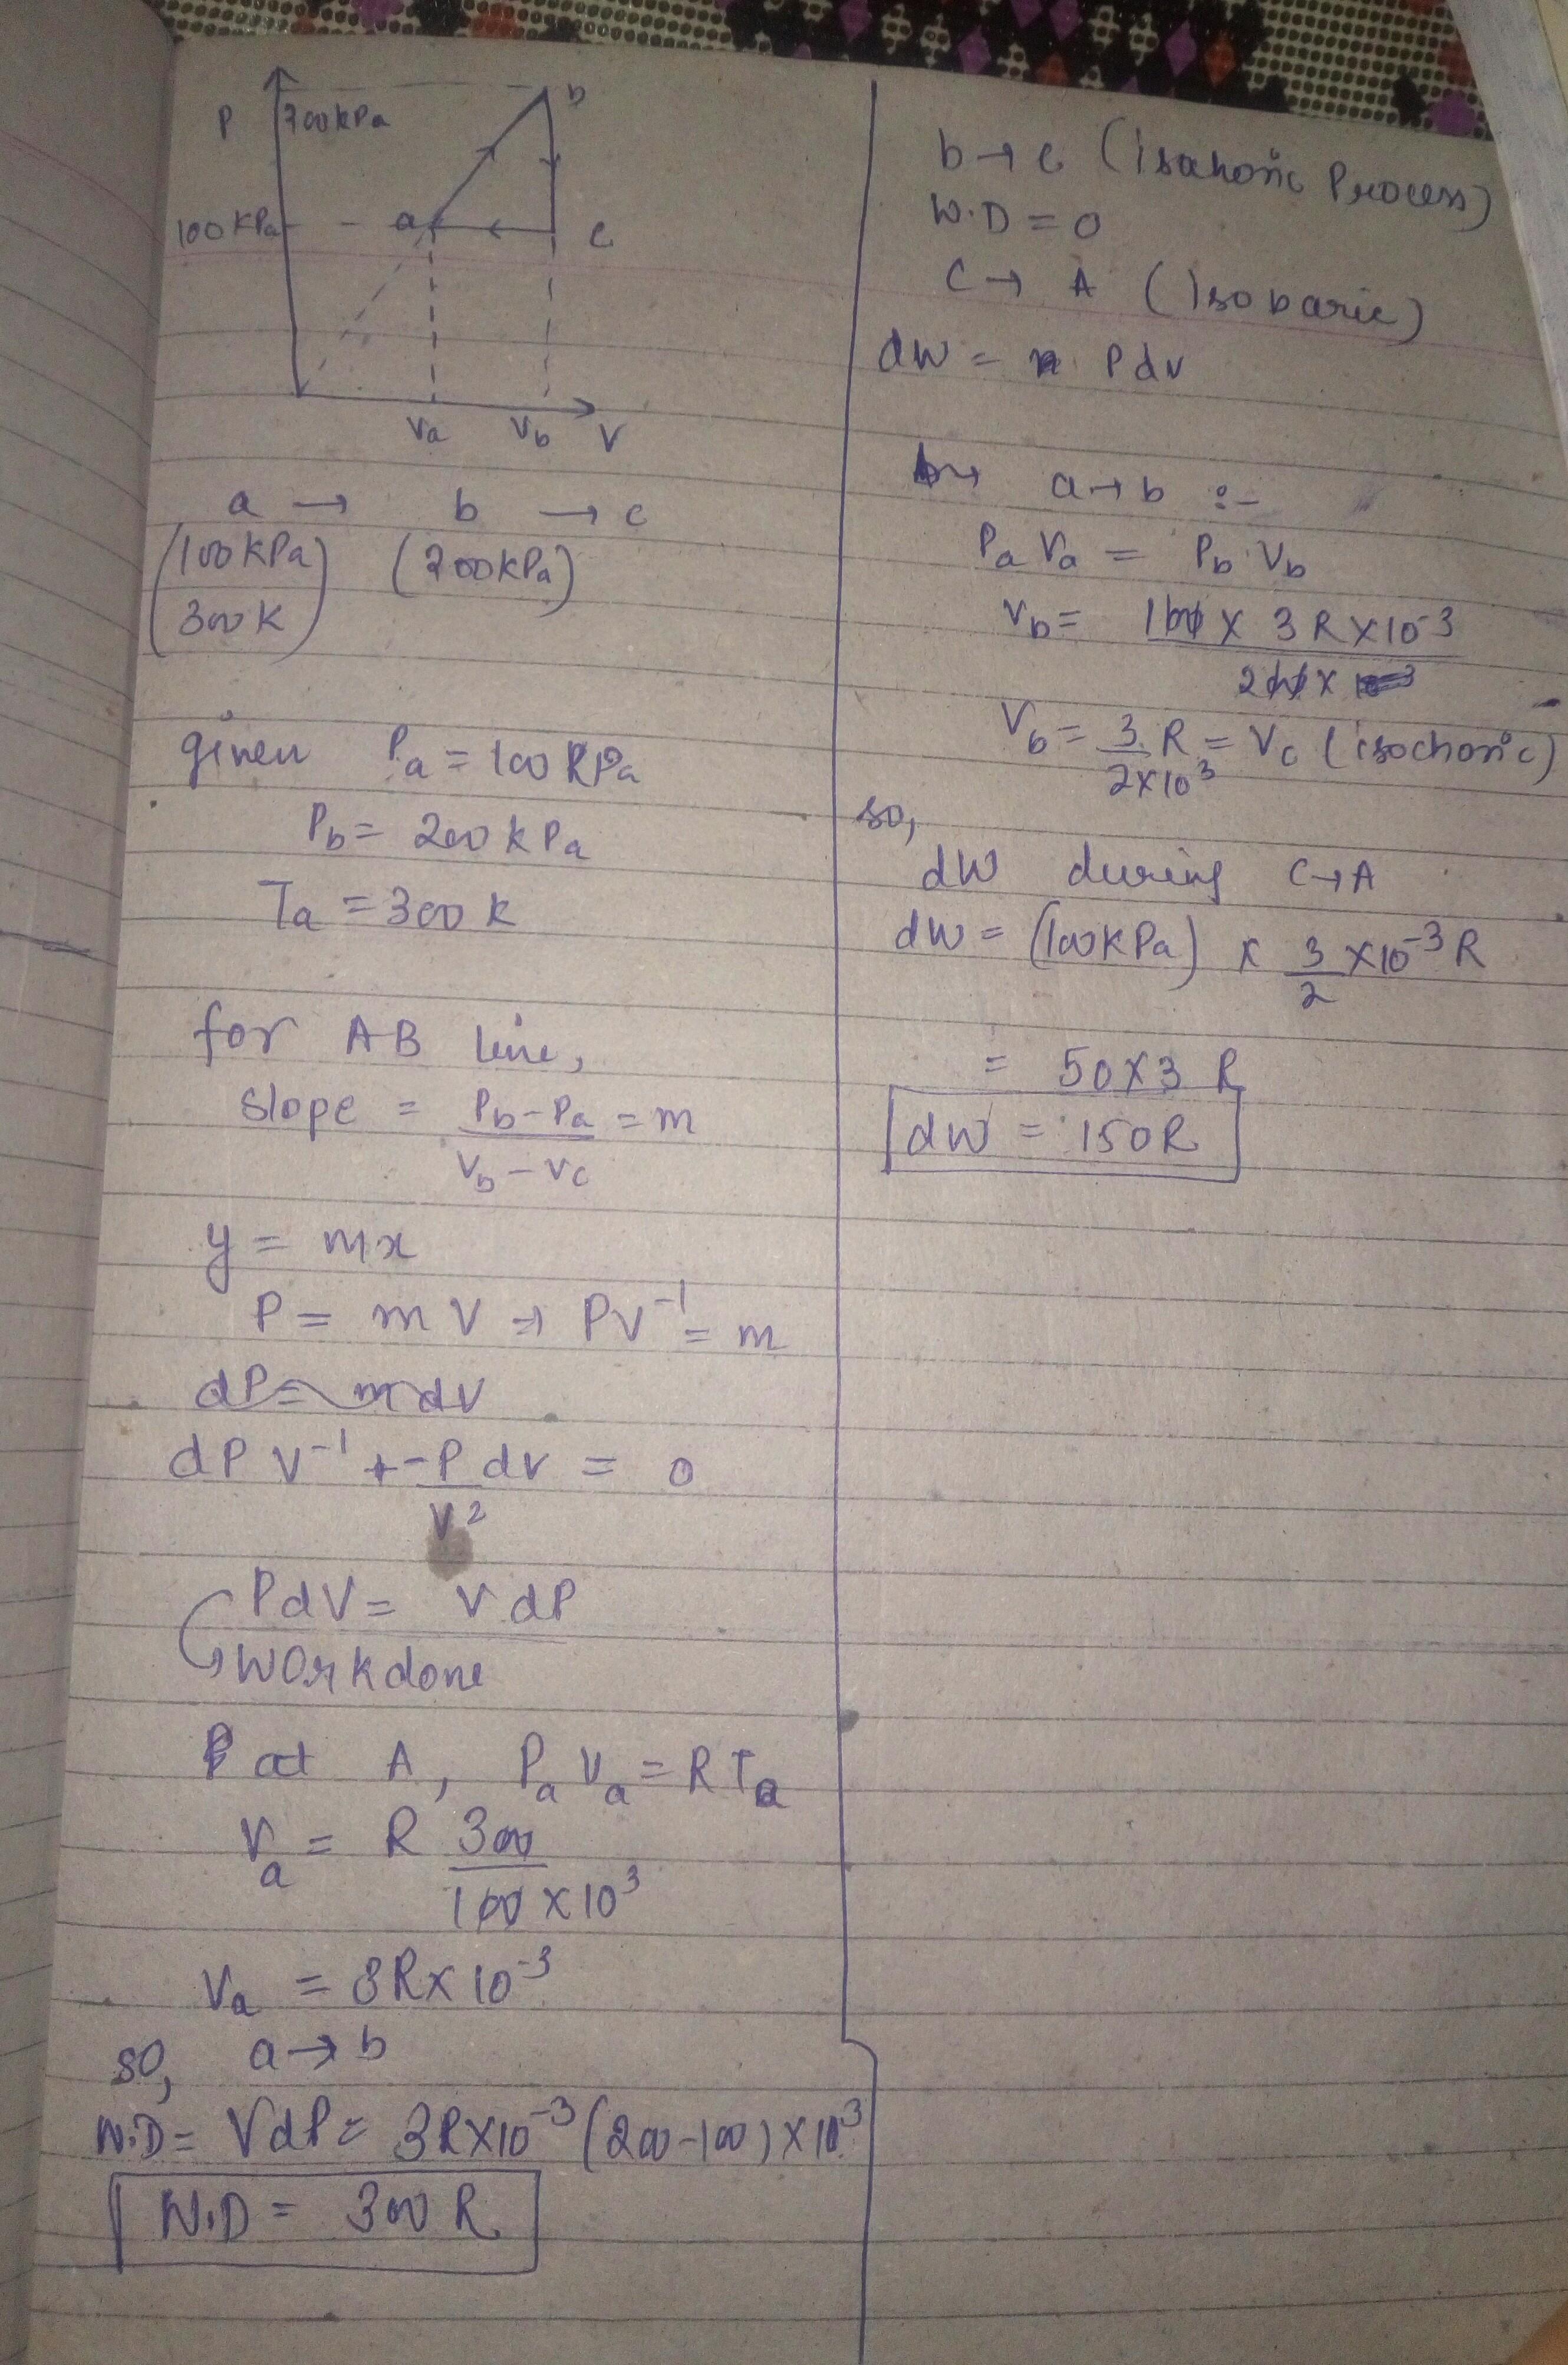 P 200kPa b
100kPa a c
Va Vb V
a → b → c
(100kPa) (200kPa)
300K
given Pa = 100kPa
Pb = 200kPa
Ta = 300k
for AB line,
slope = Pb-Pa = m
Vb-Vc
y = mx
P = mV ⇒ PV⁻¹ = m
dP = mdV
dP V⁻¹ + -P dv = 0
V²
PdV = VdP
Workdone
at A, Pa Va = RTa
Va = R 300
100 × 10³
Va = 3R×10⁻³
so, a → b
W.D = VdP = 3R×10⁻³ (200-100)×10³
W.D = 300 R
b → c (isahoric Process)
W.D = 0
C → A (Isobaric)
dW = Pdv
a → b :-
Pa Va = Pb Vb
Vb = 100 × 3R×10⁻³
200 ×
Vb = 3 R = Vc (isochoric)
2×10³
so,
dW during C → A
dW = (100kPa) × 3 ×10⁻³ R
2
= 50×3 R
dW = 150R